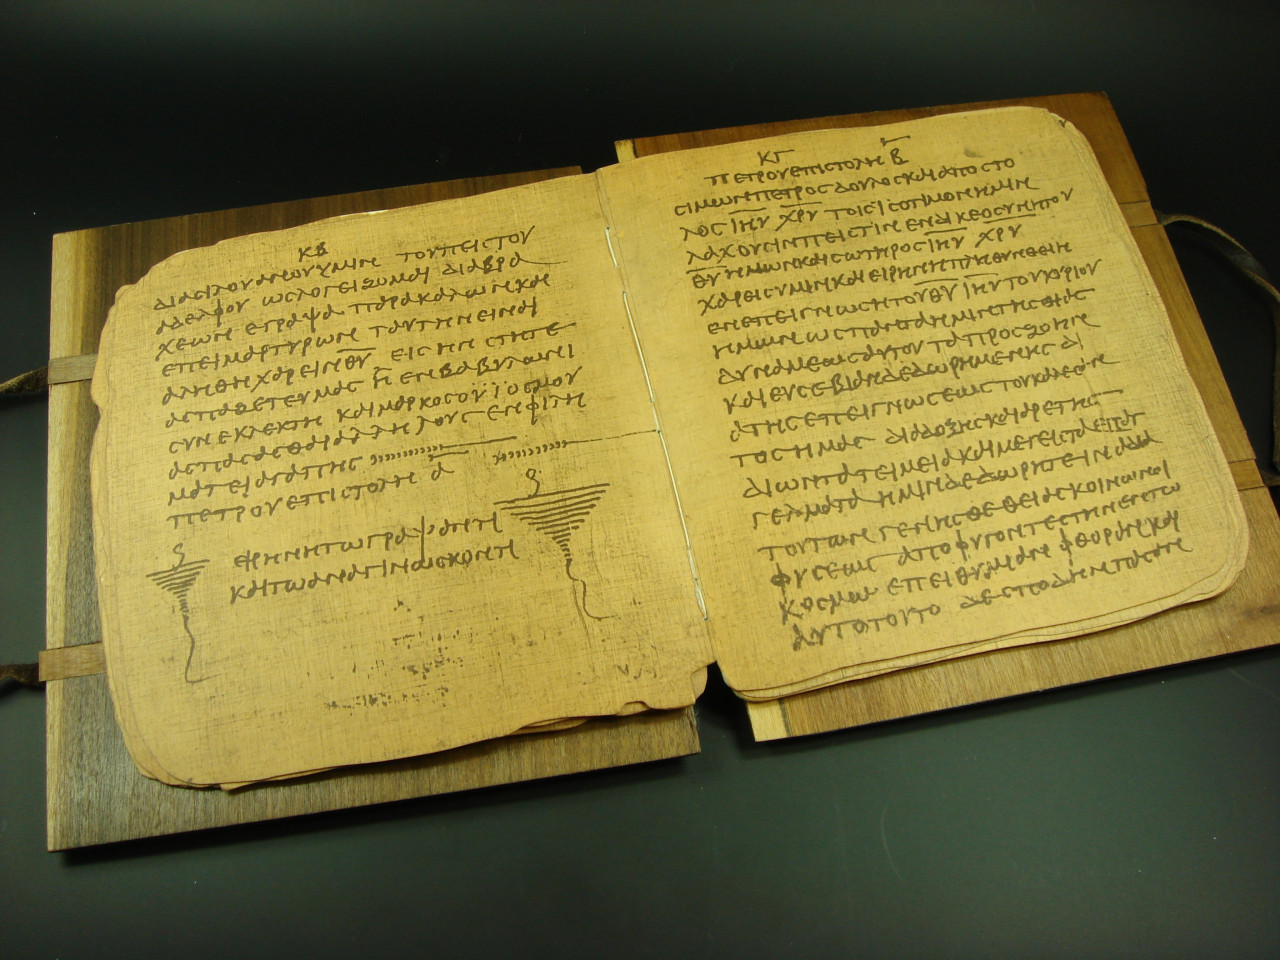 ΚΒ
ΔΙΑΣΙΛΟΥΑΝΟΥΥΜΙΝ ΤΟΥΠΕΙΣΤΟΥ
ΑΔΕΛΦΟΥ ΩΣΛΟΓΕΙΖΟΜΑΙ ΔΙΑΒΡΑ
ΧΕΩΝ ΕΓΡΑΨΑ ΠΑΡΑΚΑΛΩΝΚΑΙ
ΕΠΕΙΜΑΡΤΥΡΩΝ ΤΑΥΤΗΝΕΙΝΑΙ
ΑΛΗΘΗΧΑΡΕΙΝΘΥ ΕΙΣ ΗΝ ΣΤΗΤΕ
ΑΣΠΑΖΕΤΕΥΜΑΣ Η ΕΝΒΑΒΥΛΩΝΙ
ΣΥΝΕΚΛΕΚΤΗ ΚΑΙΜΑΡΚΟΣΟΥΪΟΣΜΟΥ
ΑΣΠΑΣΑΣΘΑΙΑΛΛΗΛΟΥΣ ΕΝΦΙΛΗ
ΜΑΤΕΙΑΓΑΠΗΣ
ΠΕΤΡΟΥΕΠΙΣΤΟΛΗ Α
ΕΙΡΗΝΗΤΩΓΡΑΨΑΝΤΙ
ΚΑΙΤΩΑΝΑΓΙΝΩΣΚΟΝΤΙ
ΚΓ
ΠΕΤΡΟΥΕΠΙΣΤΟΛΗ Β
ΣΙΜΩΝΠΕΤΡΟΣ ΔΟΥΛΟΣΚΑΙΑΠΟΣΤΟ
ΛΟΣ ΙΗΥ ΧΡΥ ΤΟΙΣΙΣΟΤΙΜΟΝΗΜΙΝ
ΛΑΧΟΥΣΙΝΠΕΙΣΤΙΝ ΕΝΔΙΚΕΟΣΥΝΗΤΟΥ
ΘΥΗΜΩΝΚΑΙΣΩΤΗΡΟΣΙΗΥ ΧΡΥ
ΧΑΡΕΙΣΥΜΙΝΚΑΙΕΙΡΗΝΗΠΛΗΘΥΝΘΕΙΗ
ΕΝΕΠΕΙΓΝΩΣΗΤΟΥΘΥ ΙΗΥΤΟΥΚΥΡΙΟΥ
ΗΜΩΝ ΩΣΠΑΝΤΑΗΜΙΝΤΗΣΘΙΑΣ
ΔΥΝΑΜΕΩΣΑΥΤΟΥ ΤΑΠΡΟΣΖΩΗΝ
ΚΑΙΕΥΣΕΒΙΑΝΔΕΔΩΡΗΜΕΝΗΣ ΔΙ
ΑΤΗΣΕΠΕΙΓΝΩΣΕΩΣΤΟΥΚΑΛΕΣΑΝ
ΤΟΣΗΜΑΣ ΔΙΑΔΟΞΗΣΚΑΙΑΡΕΤΗΣ
ΔΙΩΝΤΑΤΕΙΜΕΙΑΚΑΙΜΕΓΕΙΣΤΑΕΠΑΓ
ΓΕΛΜΑΤΑ ΗΜΙΝΔΕΔΩΡΗΤΕΙΝΑΔΙΑ
ΤΟΥΤΩΝ ΓΕΝΗΣΘΕΘΕΙΑΣΚΟΙΝΩΝΟΙ
ΦΥΣΕΩΣ ΑΠΟΦΥΓΟΝΤΕΣΤΗΝΕΝΤΩ
ΚΟΣΜΩ ΕΠΕΙΘΥΜΙΑΝ ΦΘΟΡΑΝΚΑΙ
ΑΥΤΟΤΟΥΤΟ ΔΕΣΠΟΔΗΝΠΑΣΑΝ